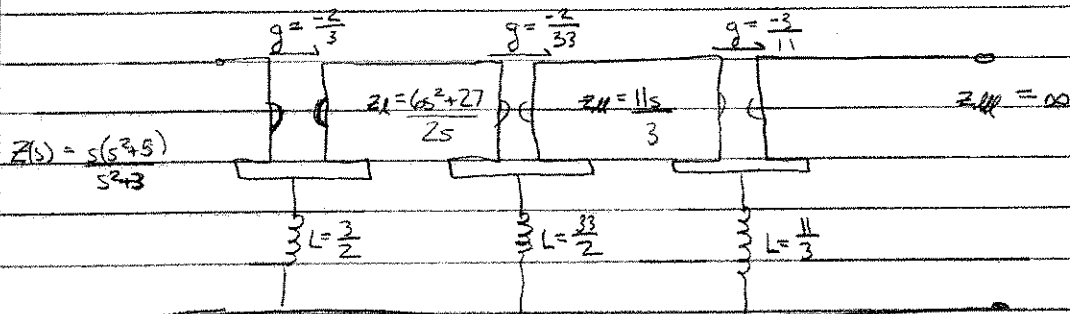 g = -2/3
g = -2/33
g = -3/11
Z(s) = s(s²+5)/s²+3
z_l = 6s²+27/2s
z_ll = 11s/3
z_lll = ∞
L = 3/2
L = 33/2
L = 11/3